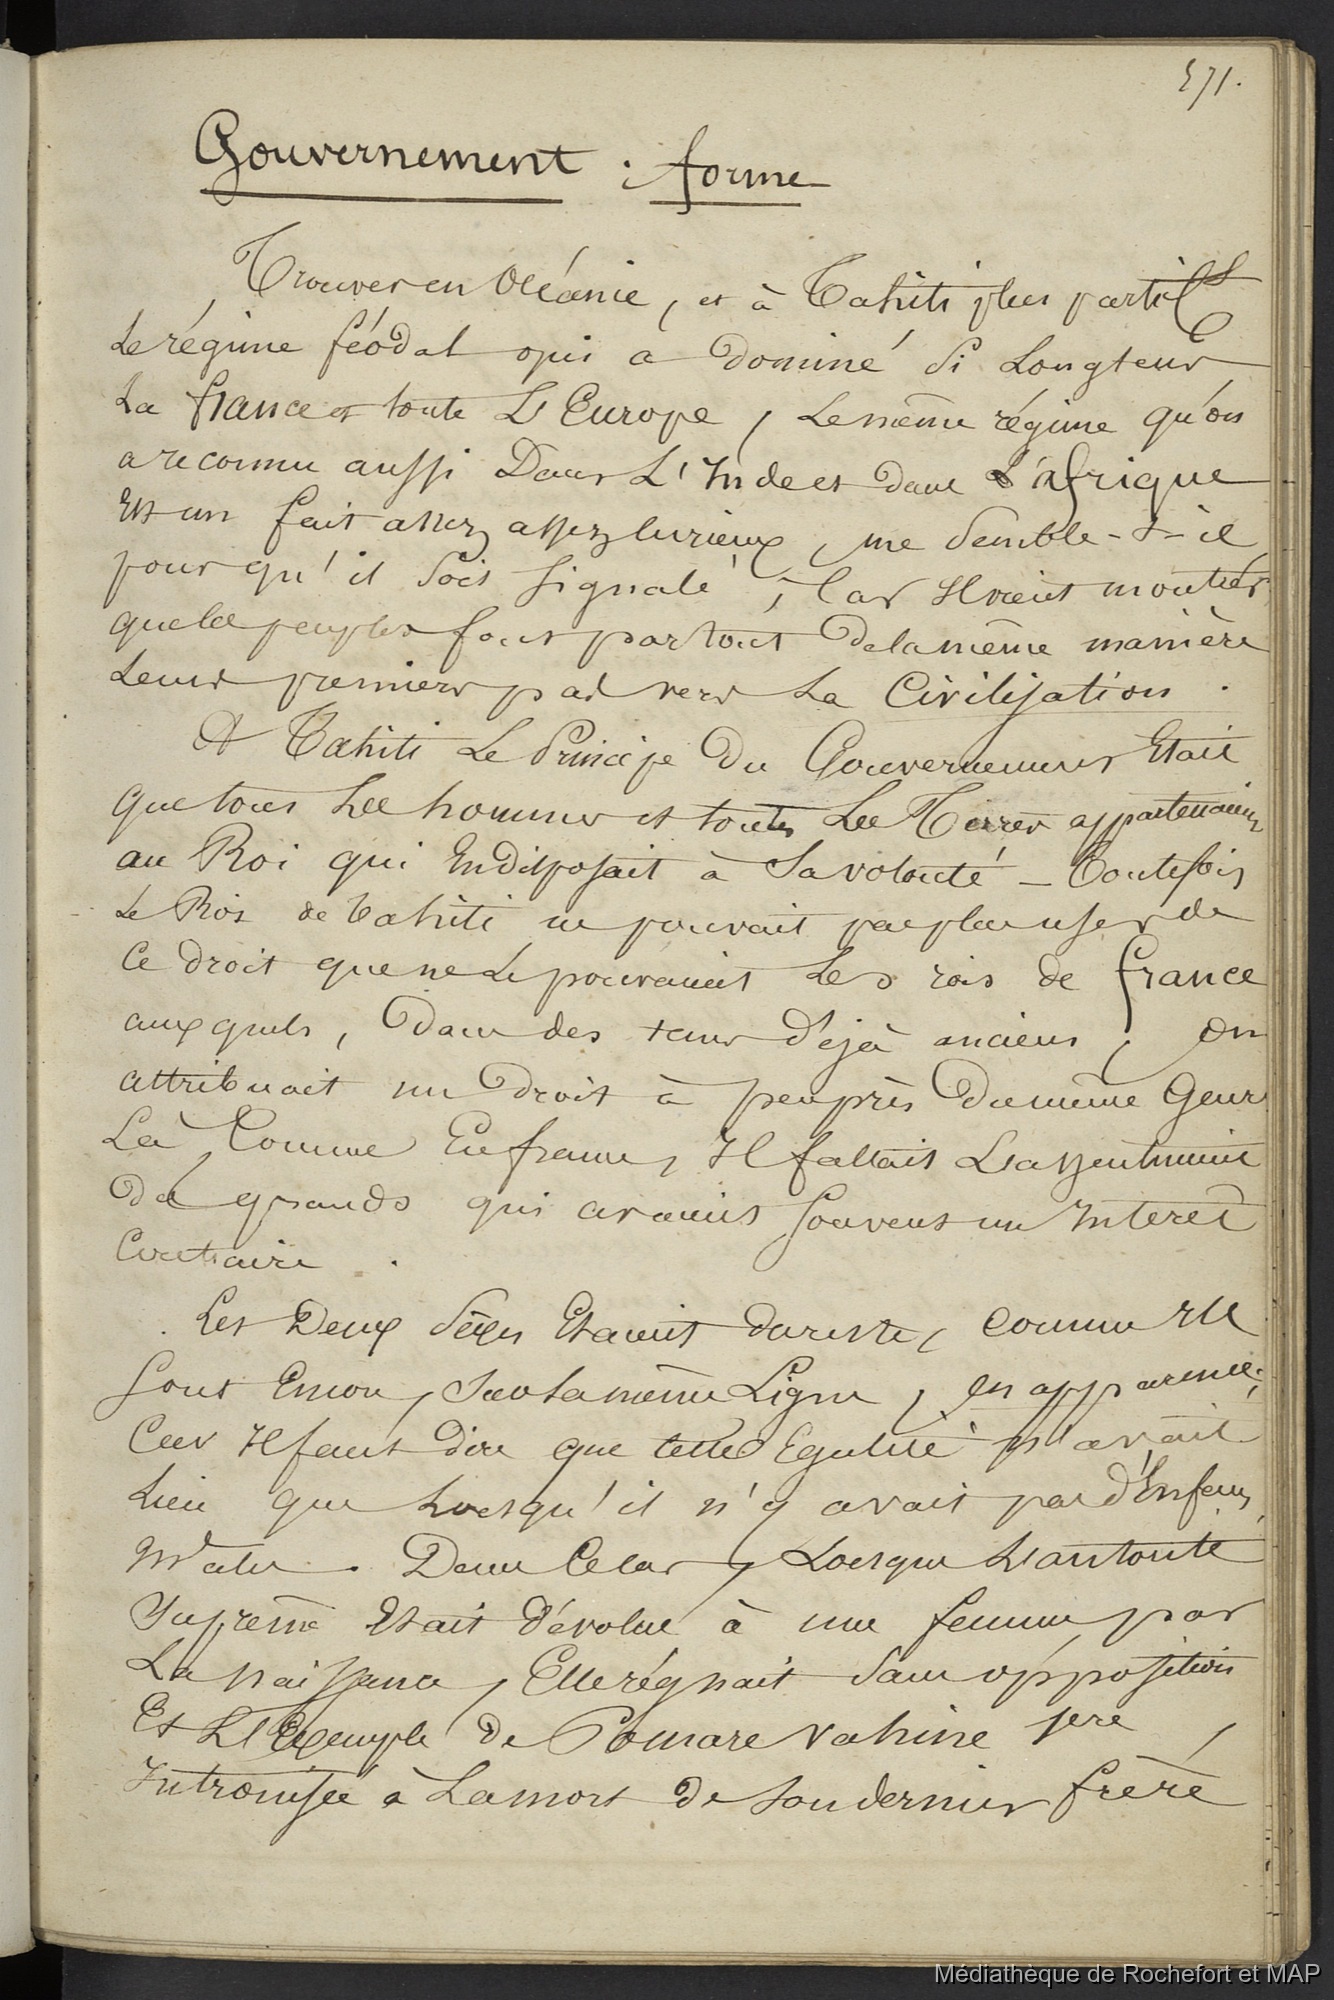 571.
Gouvernement : forme
Trouver en Océanie, et à Tahiti plus partic
Le régime féodal qui a dominé si Longtems
La france et toute L'Europe, Le même régime qu'on
a reconnu aussi Dans L'Inde et dans L'afrique
Est un fait assez assez curieux, me semble-t-il,
pour qu'il soit signalé ; Car Il vient montrer
que les peuples font partout De la même manière
Leurs premiers pas vers La Civilisation.
A Tahiti Le Principe Du Gouvernement Etait
Que tous Les hommes et toutes Les Terres appartenaient
au Roi qui En disposait à Sa volonté – Toutefois
Le Roi de Tahiti ne pouvait pas plus user de
Ce droit que ne Le pouvaient Les rois de france
auxquels, Dans des tems déjà anciens, on
attribuait un Droit à peu près Du même Genre
Là, Comme En france, Il fallait L'assentiment
Des grands qui avaient souvent un Intérêt
Contraire.
Les Deux Sexes Etaient du reste, comme Ils
sont Encore, Sur La même Ligne, en apparence ;
Car Il faut dire que cette Egalité n'avait
Lieu que Lorsqu'il n'y avait pas d'Enfans
Mâles. Dans Ce cas, Lorsque L'autorité
Suprême Etait dévolue à une femme par
La naissance, Elle régnait sans opposition
Et L'Exemple de Pomare Vahine 1ere,
Intronisée à La mort de Son dernier frère
Médiathèque de Rochefort et MAP